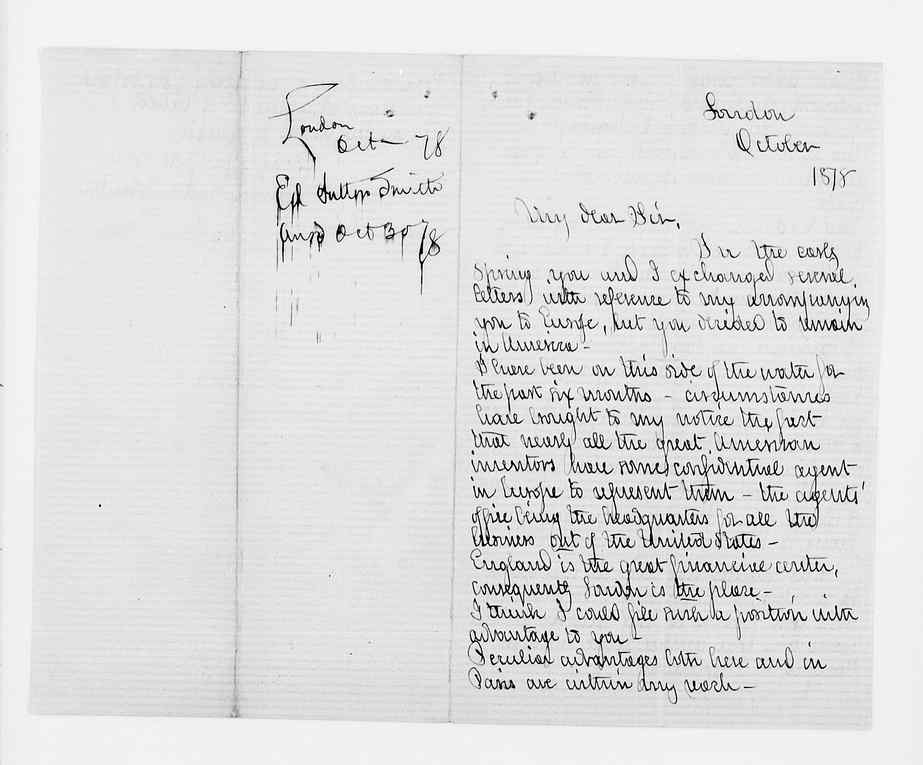 London
Oct — 78
Ed Sutton Smith
Ansd Oct 30 78
London
October
1878
My dear Sir,
In the early
Spring you and I exchanged several
letters with reference to my accompanying
you to Europe, but you decided to remain
in America –
I have been on this side of the water for
the past six months – circumstances
have brought to my notice the fact
that nearly all the great American
inventors have some confidential agent
in Europe to represent them – the agents'
office being the headquarters for all the
business out of the United States –
England is the great financial center,
consequently London is the place –
I think I could fill such a position with
advantage to you –
Peculiar advantages both here and in
Paris are within my reach –